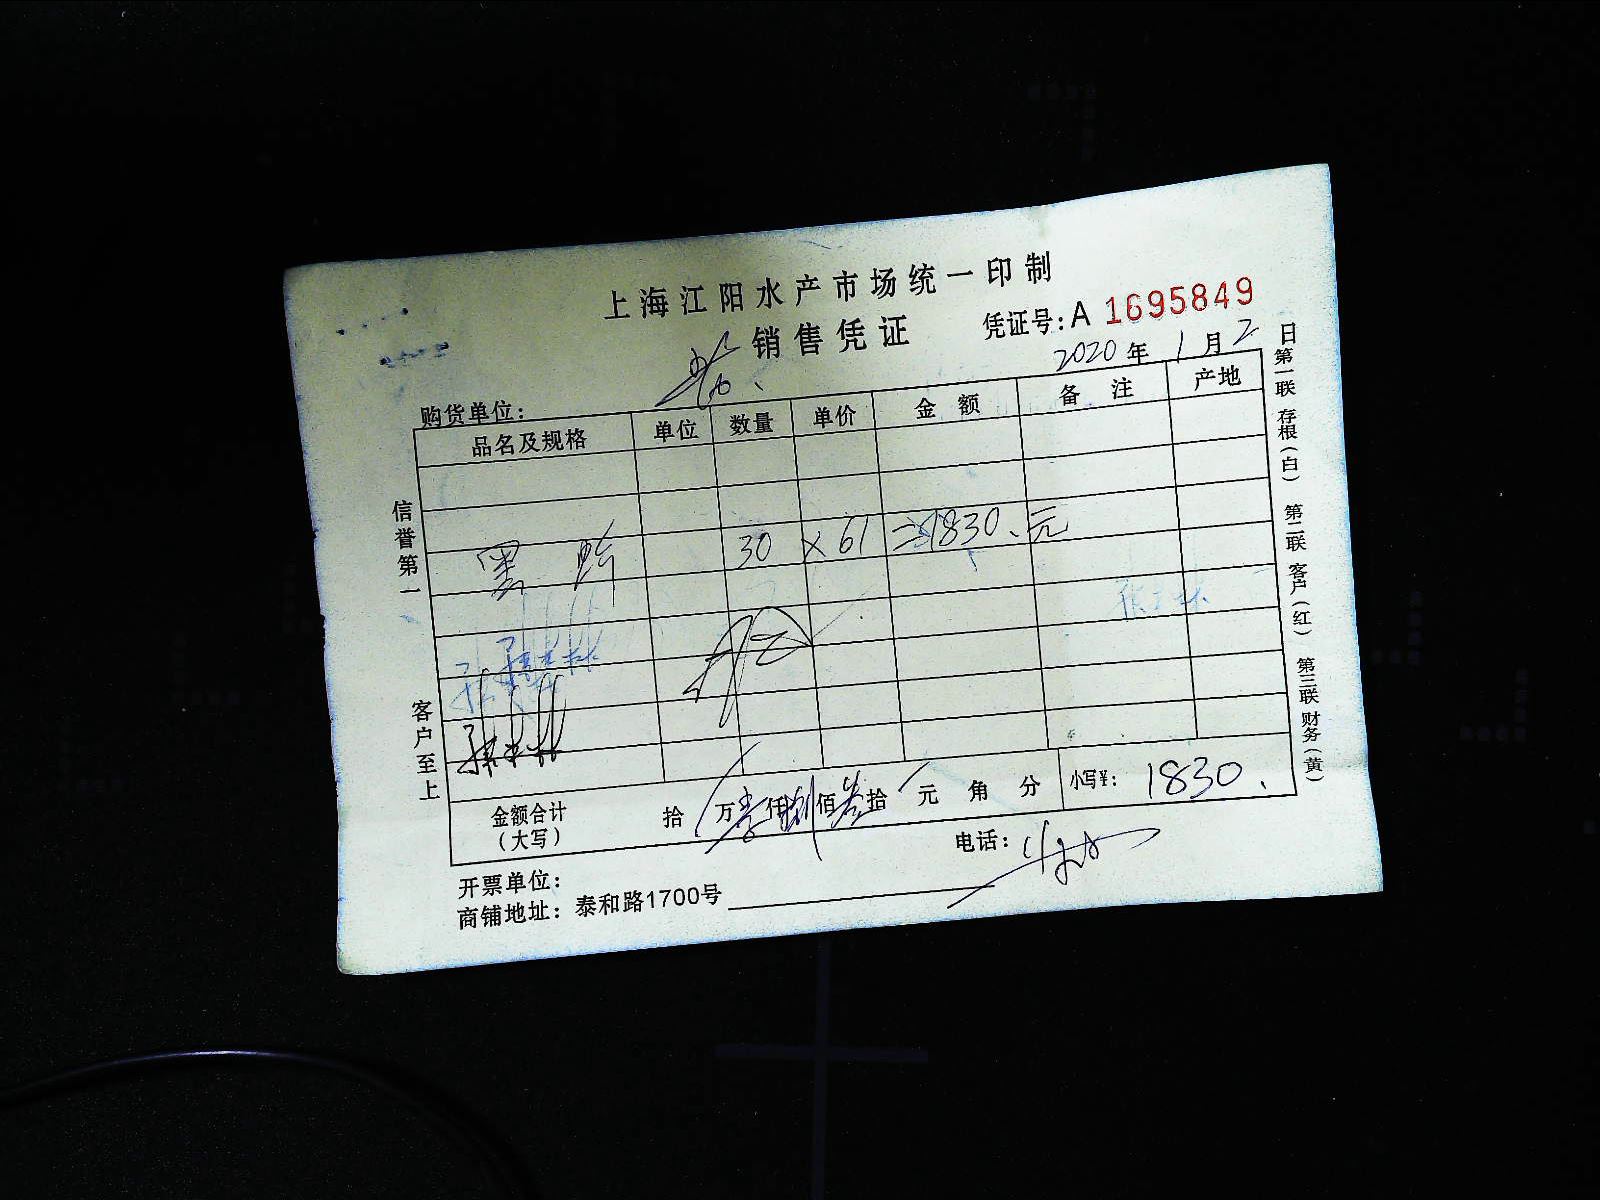 上海江阳水产市场统一印制
销售凭证
凭证号:A 1695849
2020年1月2日
购货单位:
品名及规格 单位 数量 单价 金额 备注 产地
30 × 61 =1830.元
金额合计（大写） 拾 万壹仟捌佰叁拾 元 角 分 小写¥: 1830.
开票单位: 电话:
商铺地址: 泰和路1700号
信誉第一 客户至上
第一联 存根（白） 第二联 客户（红） 第三联 财务（黄）